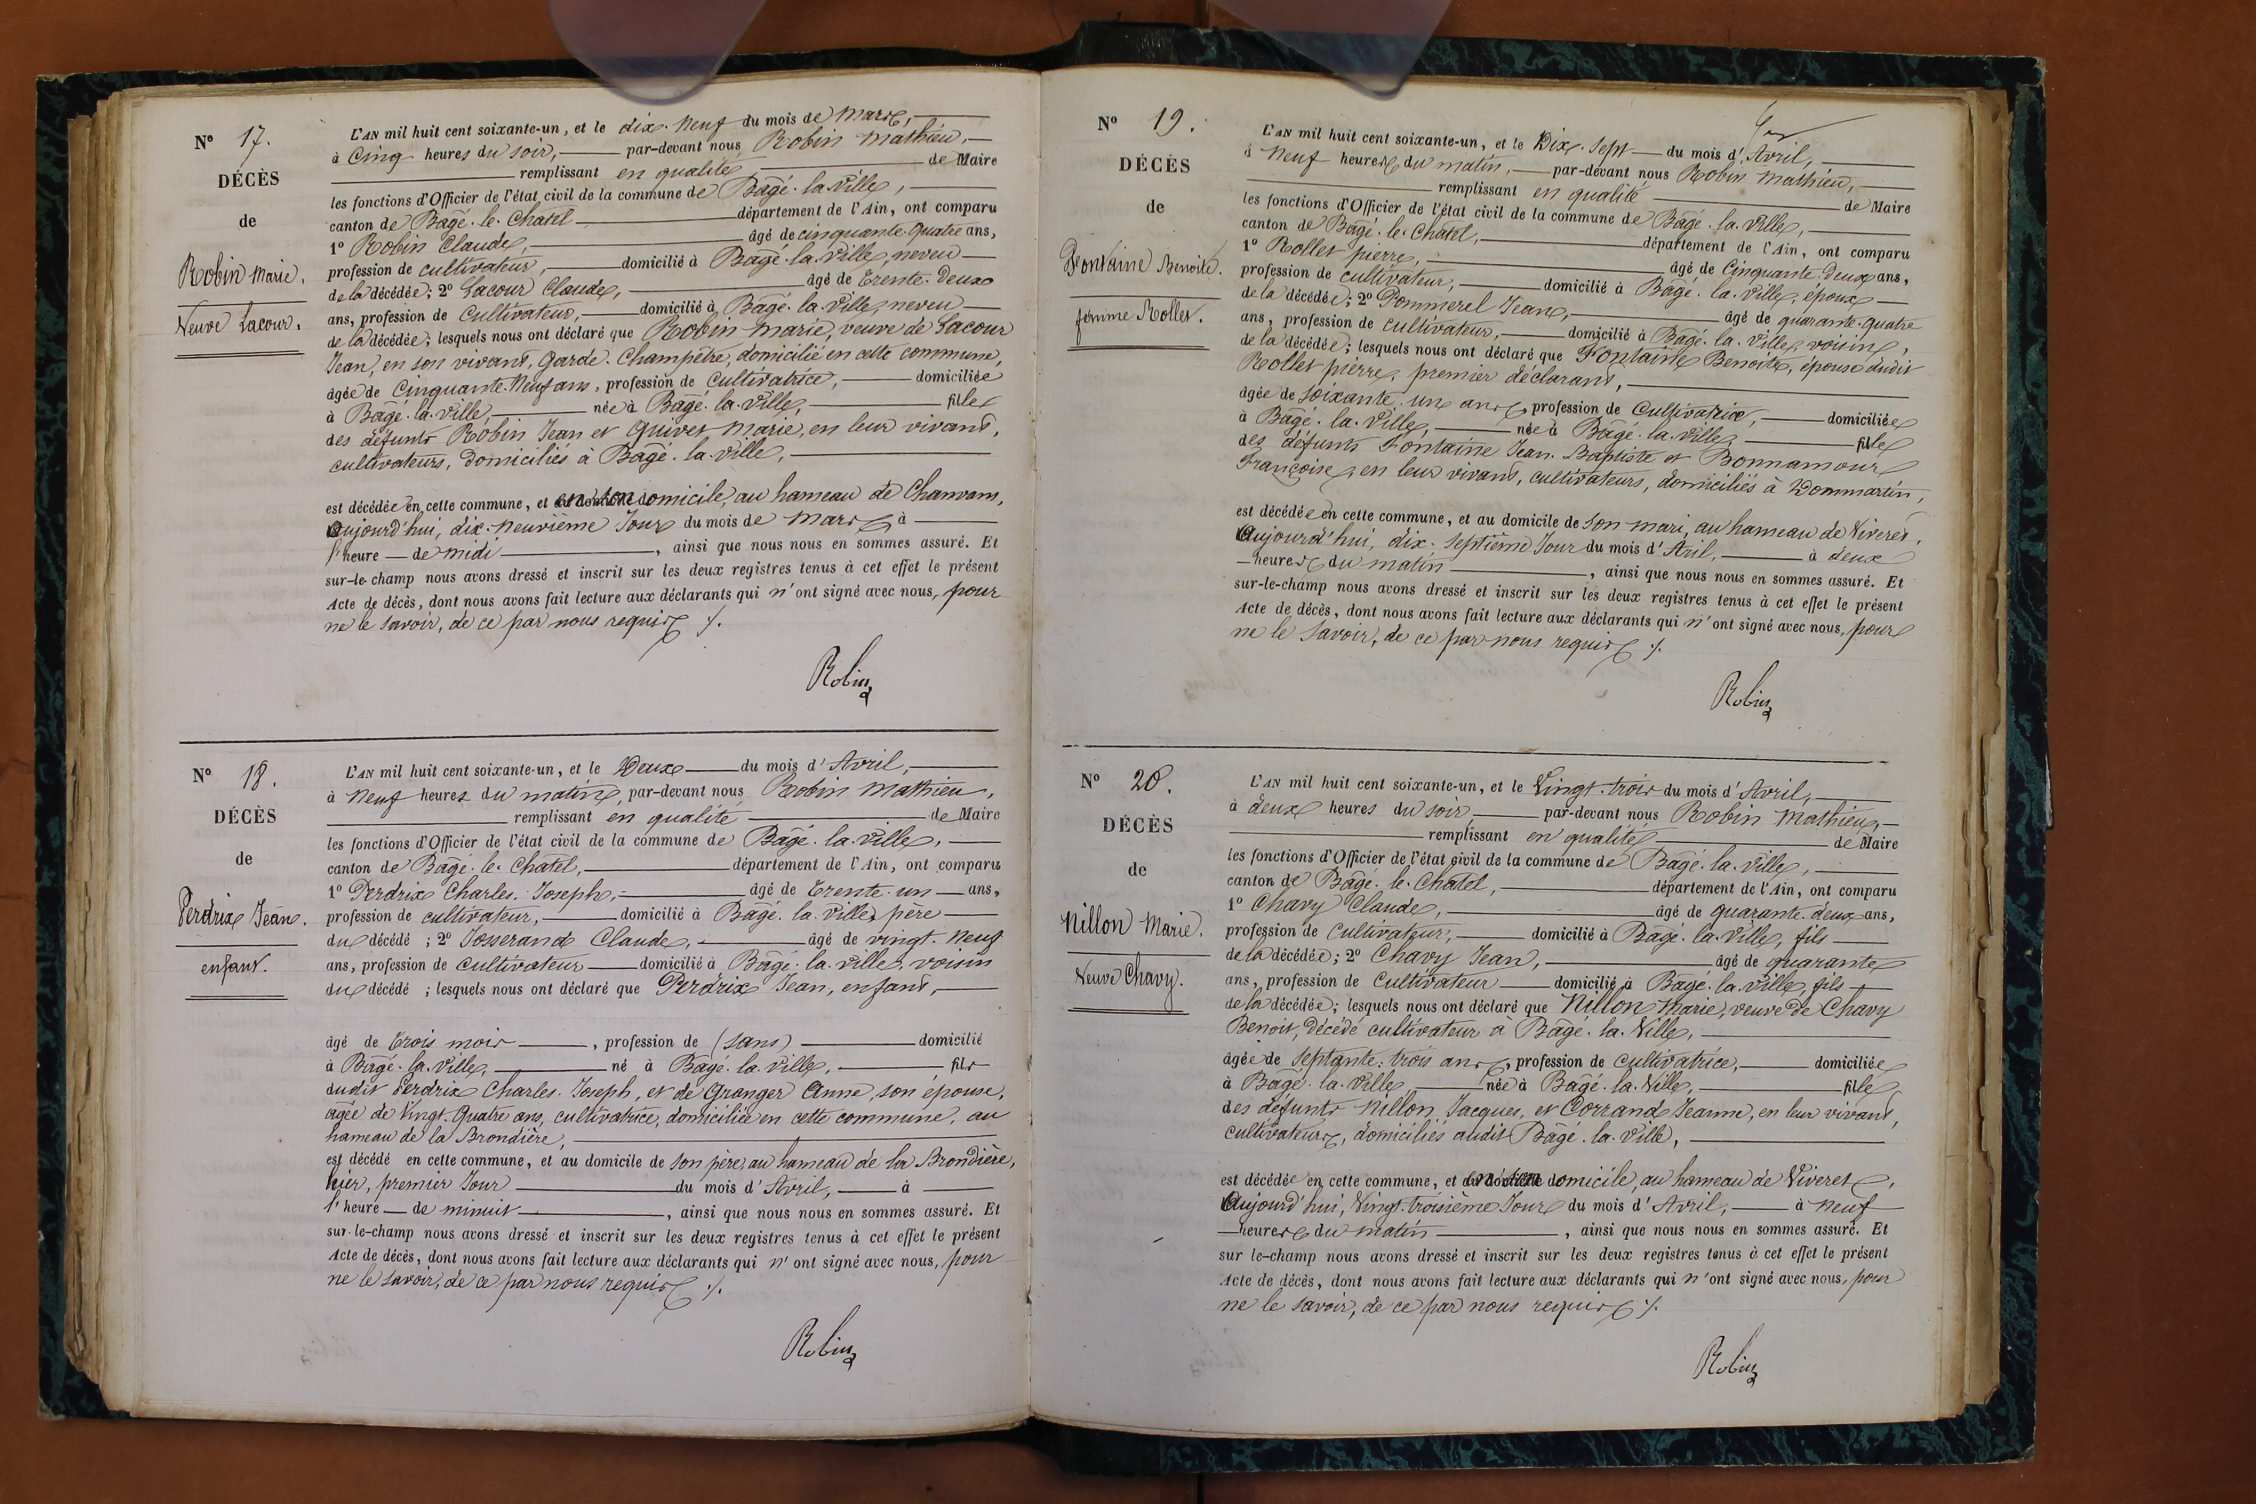 N° 17.
DÉCÈS
de
Robin Marie.
Veuve Lacour.
L'AN mil huit cent soixante-un, et le dix-Neuf du mois de Mars,
à Cinq heures du soir, par-devant nous Robin Mathieu,
remplissant en qualité de Maire
les fonctions d'Officier de l'état civil de la commune de Bâgé-la-Ville,
canton de Bâgé-le-Chatel département de l'Ain, ont comparu
1° Robin Claude, âgé de cinquante-Quatre ans,
profession de cultivateur, domicilié à Bâgé-la-Ville, neveu
de la décédée; 2° Lacour Claude, âgé de Trente-Deux
ans, profession de Cultivateur, domicilié à Bâgé-la-Ville, neveu
de la décédée; lesquels nous ont déclaré que Robin Marie, veuve de Lacour
Jean, en son vivant, Garde-Champêtre, domicilié en cette commune,
âgée de Cinquante-Neuf ans, profession de Cultivatrice, domiciliée
à Bâgé-la-Ville, née à Bâgé-la-Ville, fille
des défunts Robin Jean et Guivet Marie, en leur vivant,
cultivateurs, domiciliés à Bâgé-la-Ville,
est décédée en cette commune, et en son domicile, au hameau de Chanvans,
Aujourd'hui, dix-Neuvième Jour du mois de Mars à
l'heure de midi, ainsi que nous nous en sommes assuré. Et
sur-le-champ nous avons dressé et inscrit sur les deux registres tenus à cet effet le présent
Acte de décès, dont nous avons fait lecture aux déclarants qui n'ont signé avec nous, pour
ne le savoir, de ce par nous requis ./.
Robin
N° 18.
DÉCÈS
de
Perdrix Jean.
enfant.
L'AN mil huit cent soixante-un, et le Deux du mois d'Avril,
à Neuf heures du matin, par-devant nous Robin Mathieu,
remplissant en qualité de Maire
les fonctions d'Officier de l'état civil de la commune de Bâgé-la-Ville,
canton de Bâgé-le-Chatel, département de l'Ain, ont comparu
1° Perdrix Charles-Joseph, âgé de Trente-un ans,
profession de cultivateur, domicilié à Bâgé-la-Ville, père
du décédé ; 2° Josserand Claude, âgé de vingt-Neuf
ans, profession de Cultivateur domicilié à Bâgé-la-Ville, voisin
du décédé ; lesquels nous ont déclaré que Perdrix Jean, enfant,
âgé de Trois mois, profession de (sans) domicilié
à Bâgé-la-Ville, né à Bâgé-la-Ville, fils
dudit Perdrix Charles-Joseph, et de Granger Anne, son épouse,
âgée de Vingt-Quatre ans, cultivatrice, domiciliée en cette commune, au
hameau de la Brondière,
est décédé en cette commune, et au domicile de son père, au hameau de la Brondière,
hier, premier Jour du mois d'Avril, à
l'heure de minuit, ainsi que nous nous en sommes assuré. Et
sur-le-champ nous avons dressé et inscrit sur les deux registres tenus à cet effet le présent
Acte de décès, dont nous avons fait lecture aux déclarants qui n'ont signé avec nous, pour
ne le savoir, de ce par nous requis ./.
Robin
N° 19.
DÉCÈS
de
Fontaine Benoite.
femme Rollet.
L'AN mil huit cent soixante-un, et le Dix-Sept du mois d'Avril,
à Neuf heures du matin, par-devant nous Robin Mathieu,
remplissant en qualité de Maire
les fonctions d'Officier de l'état civil de la commune de Bâgé-la-Ville,
canton de Bâgé-le-Chatel, département de l'Ain, ont comparu
1° Rollet pierre, âgé de Cinquante-Deux ans,
profession de cultivateur, domicilié à Bâgé-la-Ville, époux
de la décédée; 2° Pommerel Jean, âgé de quarante-quatre
ans, profession de Cultivateur, domicilié à Bâgé-la-Ville, voisin,
de la décédée; lesquels nous ont déclaré que Fontaine Benoite, épouse dudit
Rollet pierre, premier déclarant,
âgée de soixante-un ans, profession de Cultivatrice, domiciliée
à Bâgé-la-Ville, née à Bâgé-la-Ville, fille
des défunts Fontaine Jean-Baptiste et Bonnamour
Françoise, en leur vivant, cultivateurs, domiciliés à Dommartin,
est décédée en cette commune, et au domicile de son mari, au hameau de Viveret,
Aujourd'hui, dix-Septième Jour du mois d'Avril, à deux
heures du matin, ainsi que nous nous en sommes assuré. Et
sur-le-champ nous avons dressé et inscrit sur les deux registres tenus à cet effet le présent
Acte de décès, dont nous avons fait lecture aux déclarants qui n'ont signé avec nous, pour
ne le savoir, de ce par nous requis ./.
Robin
N° 20.
DÉCÈS
de
Nillon Marie.
Veuve Chavy.
L'AN mil huit cent soixante-un, et le Vingt-trois du mois d'Avril,
à deux heures du soir, par-devant nous Robin Mathieu,
remplissant en qualité de Maire
les fonctions d'Officier de l'état civil de la commune de Bâgé-la-Ville,
canton de Bâgé-le-Chatel, département de l'Ain, ont comparu
1° Chavy Claude, âgé de quarante-deux ans,
profession de Cultivateur, domicilié à Bâgé-la-Ville, fils
de la décédée; 2° Chavy Jean, âgé de quarante
ans, profession de Cultivateur domicilié à Bâgé-la-Ville, fils
de la décédée; lesquels nous ont déclaré que Nillon Marie, veuve de Chavy
Benoit, décédé cultivateur à Bâgé-la-Ville,
âgée de Septante-trois ans, profession de cultivatrice, domiciliée
à Bâgé-la-Ville, née à Bâgé-la-Ville, fille
des défunts Nillon Jacques, et Corrand Jeanne, en leur vivant,
cultivateurs, domiciliés audit Bâgé-la-Ville,
est décédée en cette commune, et en son domicile, au hameau de Viveret,
Aujourd'hui, Vingt-troisième Jour du mois d'Avril, à Neuf
heures du matin, ainsi que nous nous en sommes assuré. Et
sur le-champ nous avons dressé et inscrit sur les deux registres tenus à cet effet le présent
Acte de décès, dont nous avons fait lecture aux déclarants qui n'ont signé avec nous, pour
ne le savoir, de ce par nous requis ./.
Robin